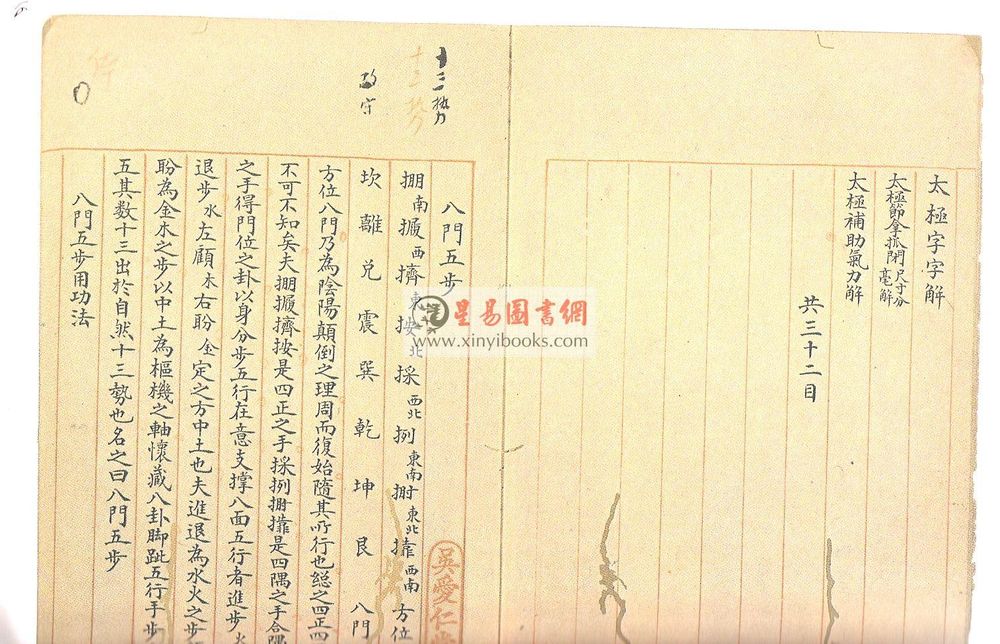 太極字字解
太極節拿抓閉尺寸分毫解
太極補助氣力解
共三十二目
十三勢
十三勢
攻守
八門五步
掤南 擠東 按北 採西北 挒東南 東北 靠西南 方位
坎 離 兌 震 巽 乾 坤 艮 八門
方位八門乃為陰陽顛倒之理周而復始隨其所行也總之四正四
不可不知矣夫掤擠按是四正之手採挒靠是四隅之手合隅
之手得門位之卦以身分步五行在意支撐八面五行者進步火
退步水左顧木右盼金定之方中土也夫進退為水火之步
盼為金木之步以中土為樞機之軸懷藏八卦脚跐五行手步
五其數十三出於自然十三勢也名之曰八門五步
八門五步用功法
吳愛仁
星易圖書網
www.xinyibooks.com